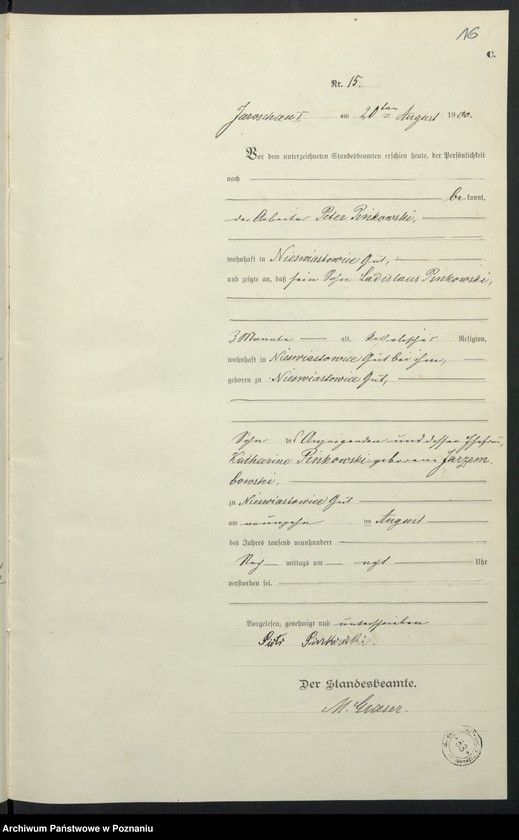 16
C.
Nr. 15.
Jaroschau I am 20ten August 1900.
Vor dem unterzeichneten Standesbeamten erschien heute, der Persönlichkeit
nach
be kannt,
der Arbeiter Peter Pinkowski,
wohnhaft in Nieswiastowice Gut,
und zeigte an, daß sein Sohn Ladislaus Pinkowski,
3 Monate alt, katolischer Religion,
wohnhaft in Nieswiastowice Gut bei ihm,
geboren zu Nieswiastowice Gut,
Sohn des Anzeigenden und dessen Ehefrau
Katharine Pinkowski geborene Jarzem-
bowski,
zu Nieswiastowice Gut
am neunzehn im August
des Jahres tausend neunhundert
Nach mittags um acht Uhr
verstorben sei.
Vorgelesen, genehmigt und unterschrieben
Piotr
Der Standesbeamte.
M. Graser.
Archiwum Państwowe w Poznaniu